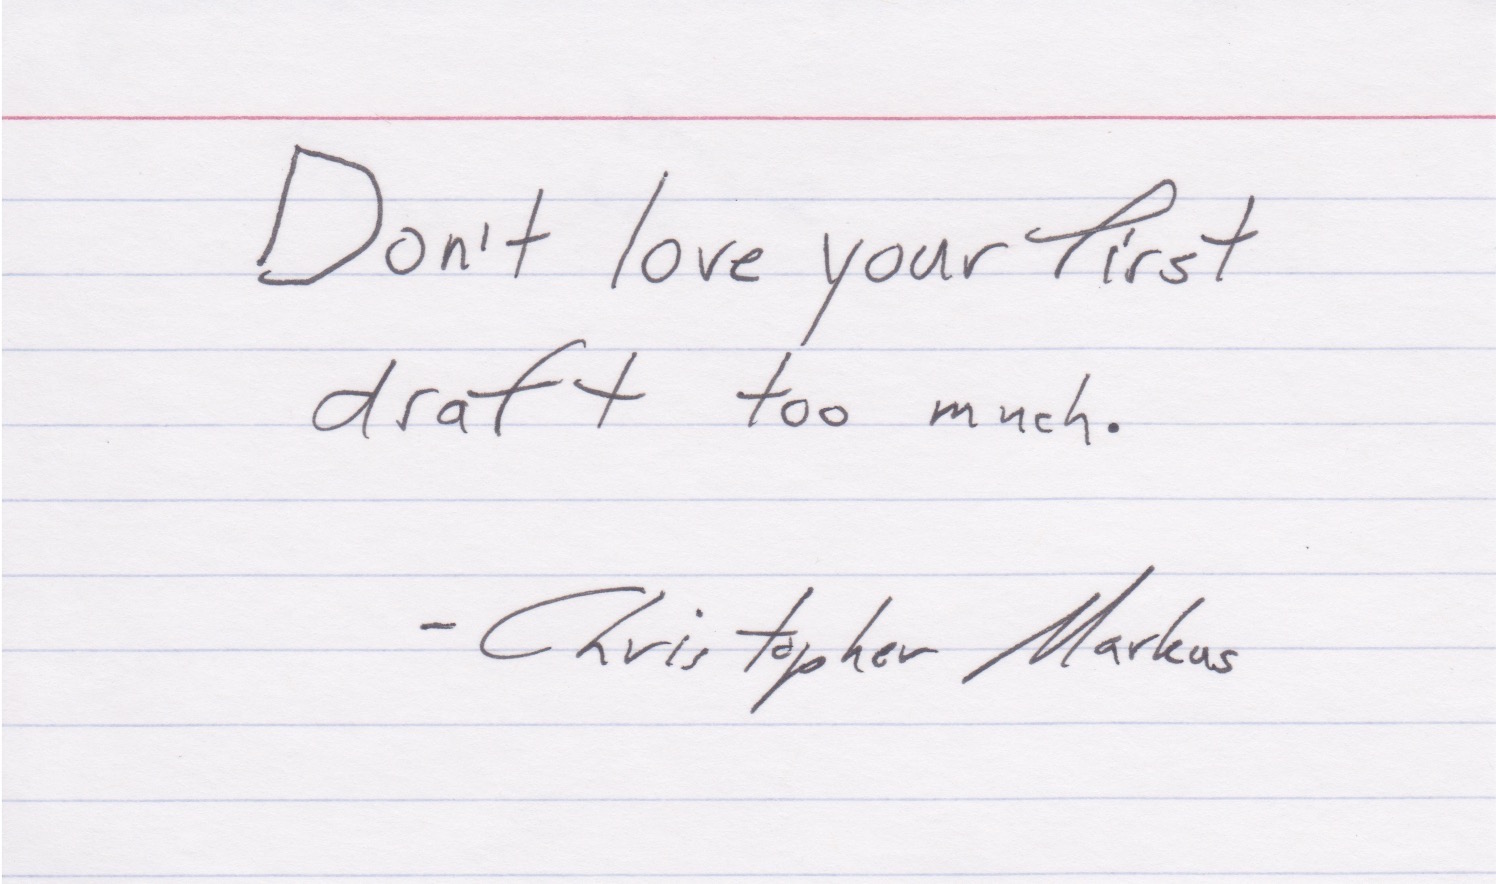 Don't love your first
draft too much.
- Christopher Markus